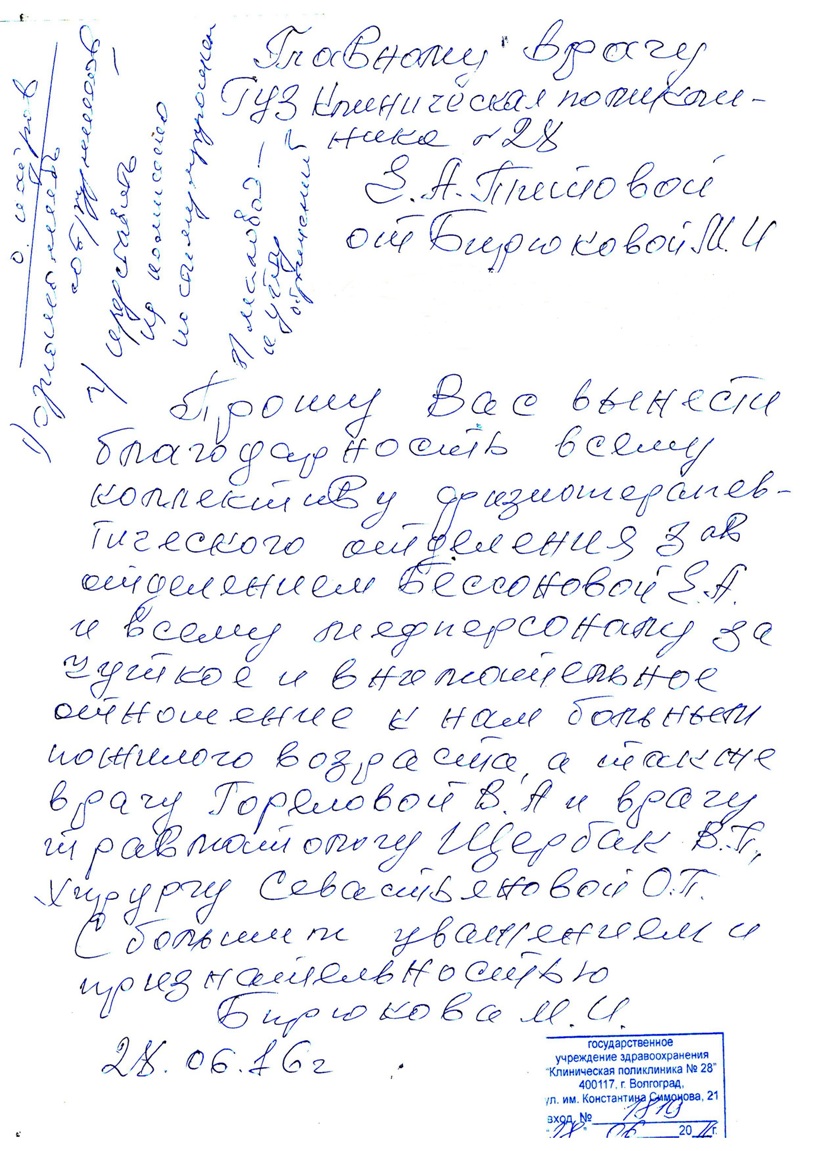 Главному врачу
ГУЗ Клиническая поликли-
ника №28
Е.А. Пшиновой
от Бирюковой М.И
Прошу Вас вынести
благодарность всему
коллективу физиотерапев-
тического отделения зав
отделением Бессоновой Е.А.
и всему медперсоналу за
чуткое и внимательное
отношение к нам больным
пожилого возраста, а также
врачу Гореловой В.А и врачу
травматологу Щербак В.П,
Хирургу Севастьяновой О.П.
С большим уважением и
признательностью
Бирюкова М.И.
28.06.16г
государственное
учреждение здравоохранения
"Клиническая поликлиника № 28"
400117, г. Волгоград,
ул. им. Константина Симонова, 21
вход. № 1819
"28" 06 2016г.